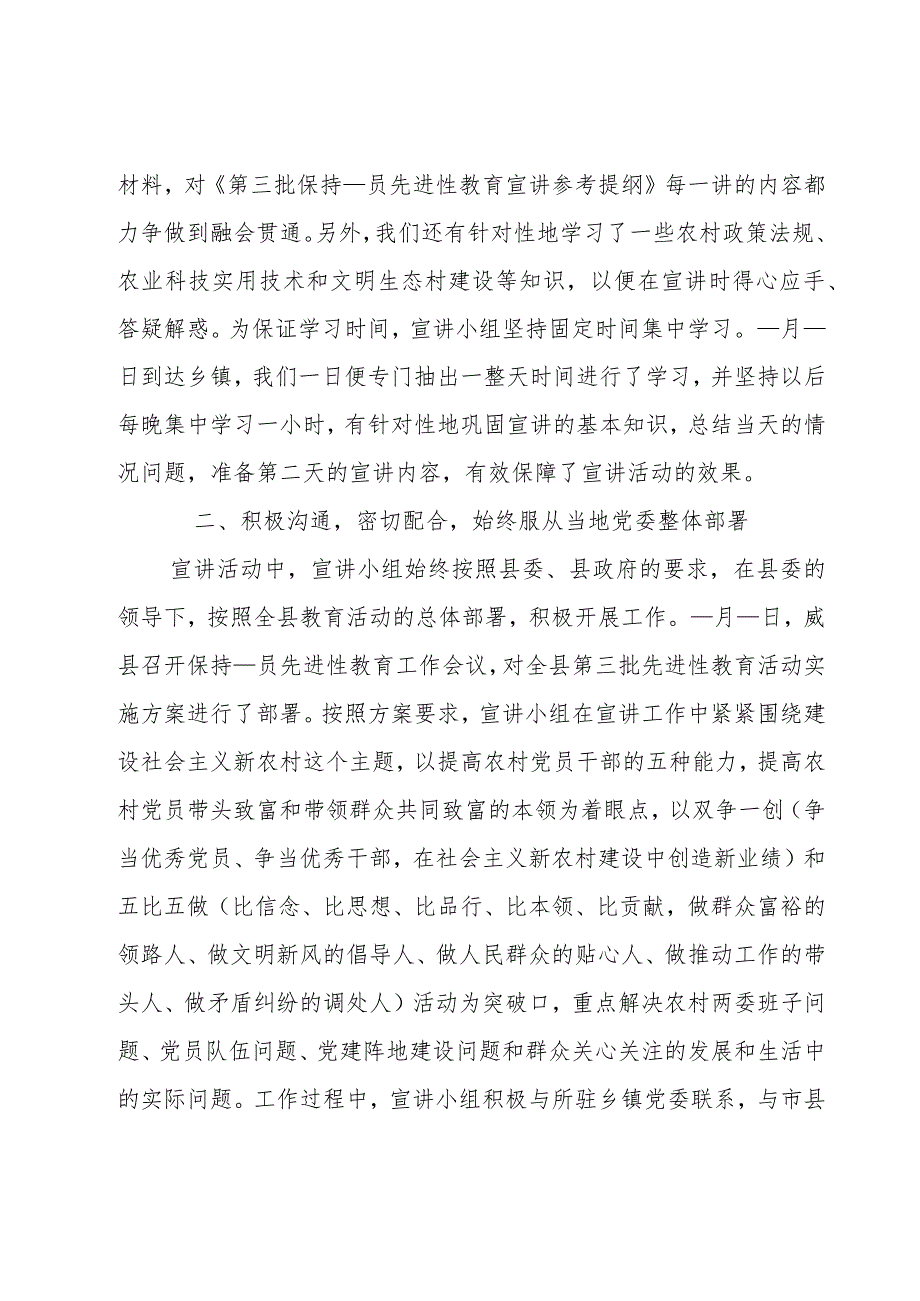 材料，对《第三批保持—员先进性教育宣讲参考提纲》每一讲的内容都
力争做到融会贯通。另外，我们还有针对性地学习了一些农村政策法规、
农业科技实用技术和文明生态村建设等知识，以便在宣讲时得心应手、
答疑解惑。为保证学习时间，宣讲小组坚持固定时间集中学习。—月—
日到达乡镇，我们一日便专门抽出一整天时间进行了学习，并坚持以后
每晚集中学习一小时，有针对性地巩固宣讲的基本知识，总结当天的情
况问题，准备第二天的宣讲内容，有效保障了宣讲活动的效果。
二、积极沟通，密切配合，始终服从当地党委整体部署
宣讲活动中，宣讲小组始终按照县委、县政府的要求，在县委的
领导下，按照全县教育活动的总体部署，积极开展工作。—月—日，威
县召开保持—员先进性教育工作会议，对全县第三批先进性教育活动实
施方案进行了部署。按照方案要求，宣讲小组在宣讲工作中紧紧围绕建
设社会主义新农村这个主题，以提高农村党员干部的五种能力，提高农
村党员带头致富和带领群众共同致富的本领为着眼点，以双争一创（争
当优秀党员、争当优秀干部，在社会主义新农村建设中创造新业绩）和
五比五做（比信念、比思想、比品行、比本领、比贡献，做群众富裕的
领路人、做文明新风的倡导人、做人民群众的贴心人、做推动工作的带
头人、做矛盾纠纷的调处人）活动为突破口，重点解决农村两委班子问
题、党员队伍问题、党建阵地建设问题和群众关心关注的发展和生活中
的实际问题。工作过程中，宣讲小组积极与所驻乡镇党委联系，与市县